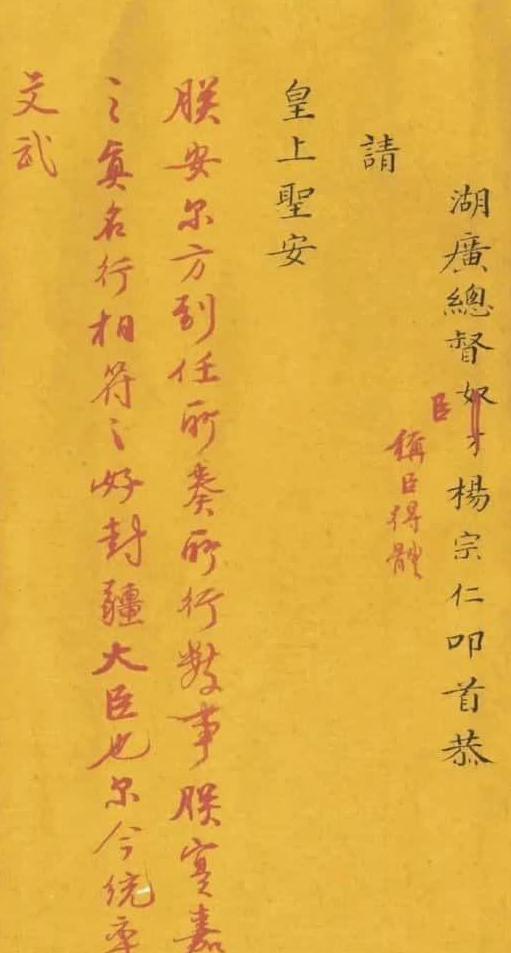 湖廣總督奴才楊宗仁叩首恭
臣
稱臣得體
請
皇上聖安
朕安尔方到任所奏所行數事朕寔嘉
之之真名行相符之好封疆大臣也尔今統率
文武